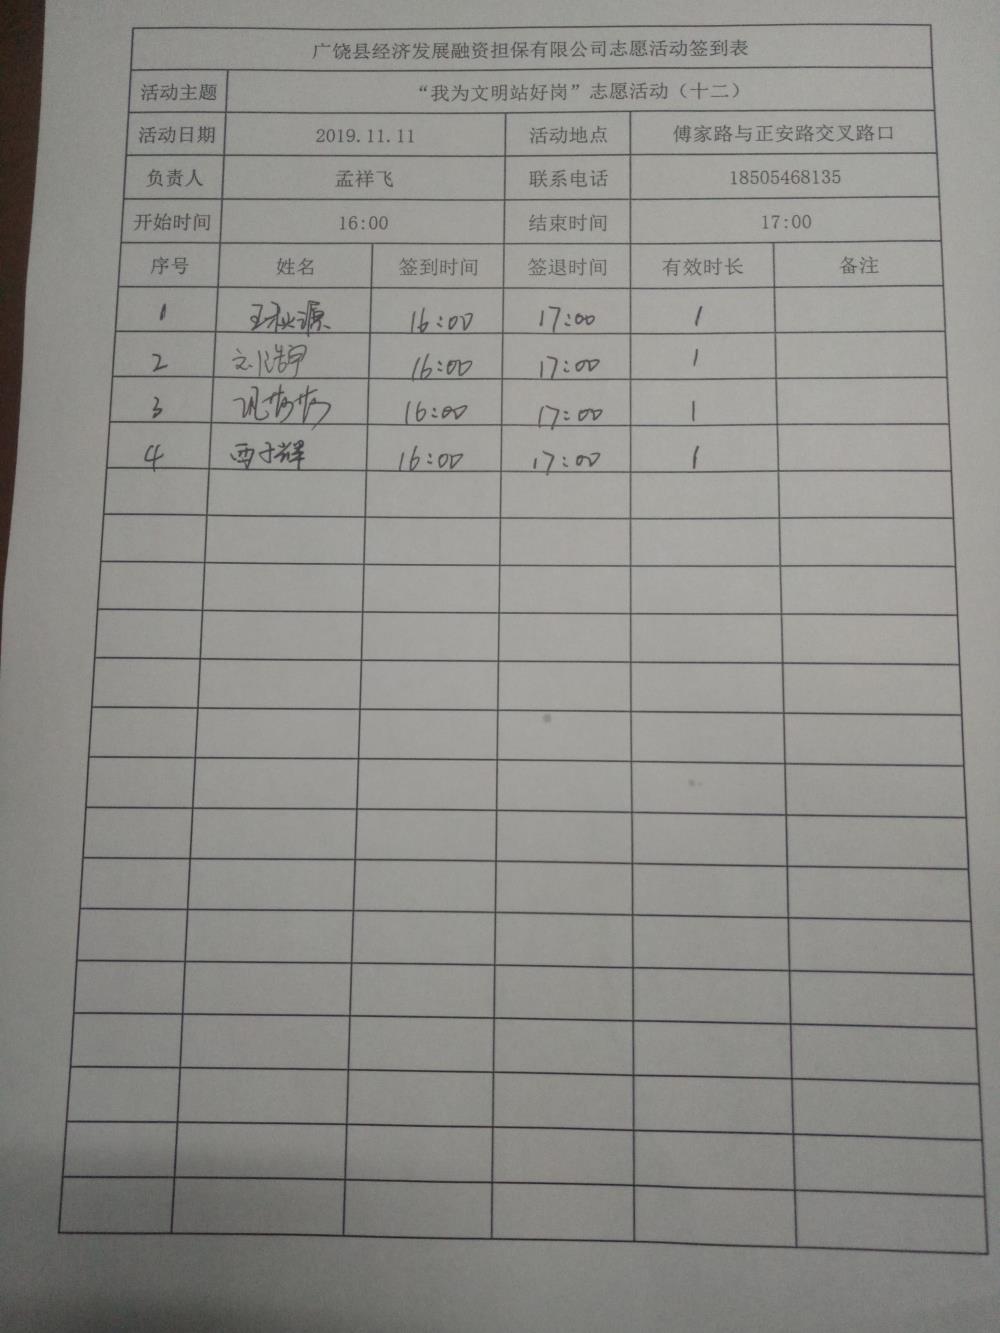 广饶县经济发展融资担保有限公司志愿活动签到表
活动主题 “我为文明站好岗”志愿活动（十二）
活动日期 2019.11.11 活动地点 傅家路与正安路交叉路口
负责人 孟祥飞 联系电话 18505468135
开始时间 16:00 结束时间 17:00
序号 姓名 签到时间 签退时间 有效时长 备注
1 16:00 17:00 1
2 刘浩宇 16:00 17:00 1
3 16:00 17:00 1
4 16:00 17:00 1